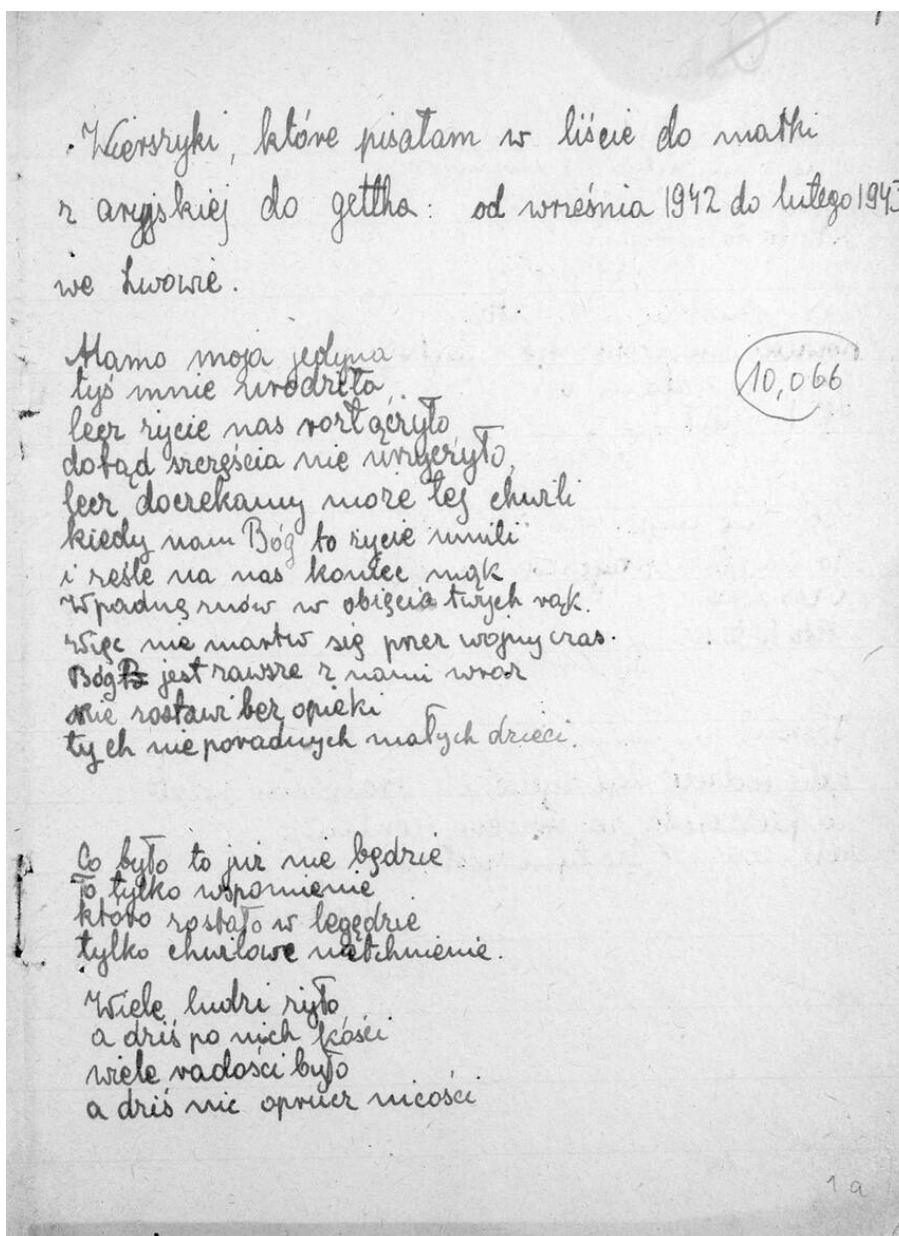 Wierszyki, które pisałam w liście do matki
z aryjskiej do gettha: od września 1942 do lutego 1943
we Lwowie.
Mamo moja jedyna
tyś mnie urodziła,
10,066
lecz życie nas rozłączyło
dotąd szczęścia nie użyczyło,
lecz doczekamy może tej chwili
kiedy nam Bóg to życie umili
i ześle na nas koniec mąk
Wpadnę znów w obięcia twych rąk.
Więc nie martw się przez wojny czas.
Bóg jest zawsze z nami wraz
nie zostawi bez opieki
tych nie poradnych małych dzieci.
Co było to już nie będzie
To tylko wspomienie
które zostało w legędzie
tylko chwilowe natchnienie.
Wiele ludzi żyło
a dziś po nich kości
wiele radości było
a dziś nic oprucz nicości
1a